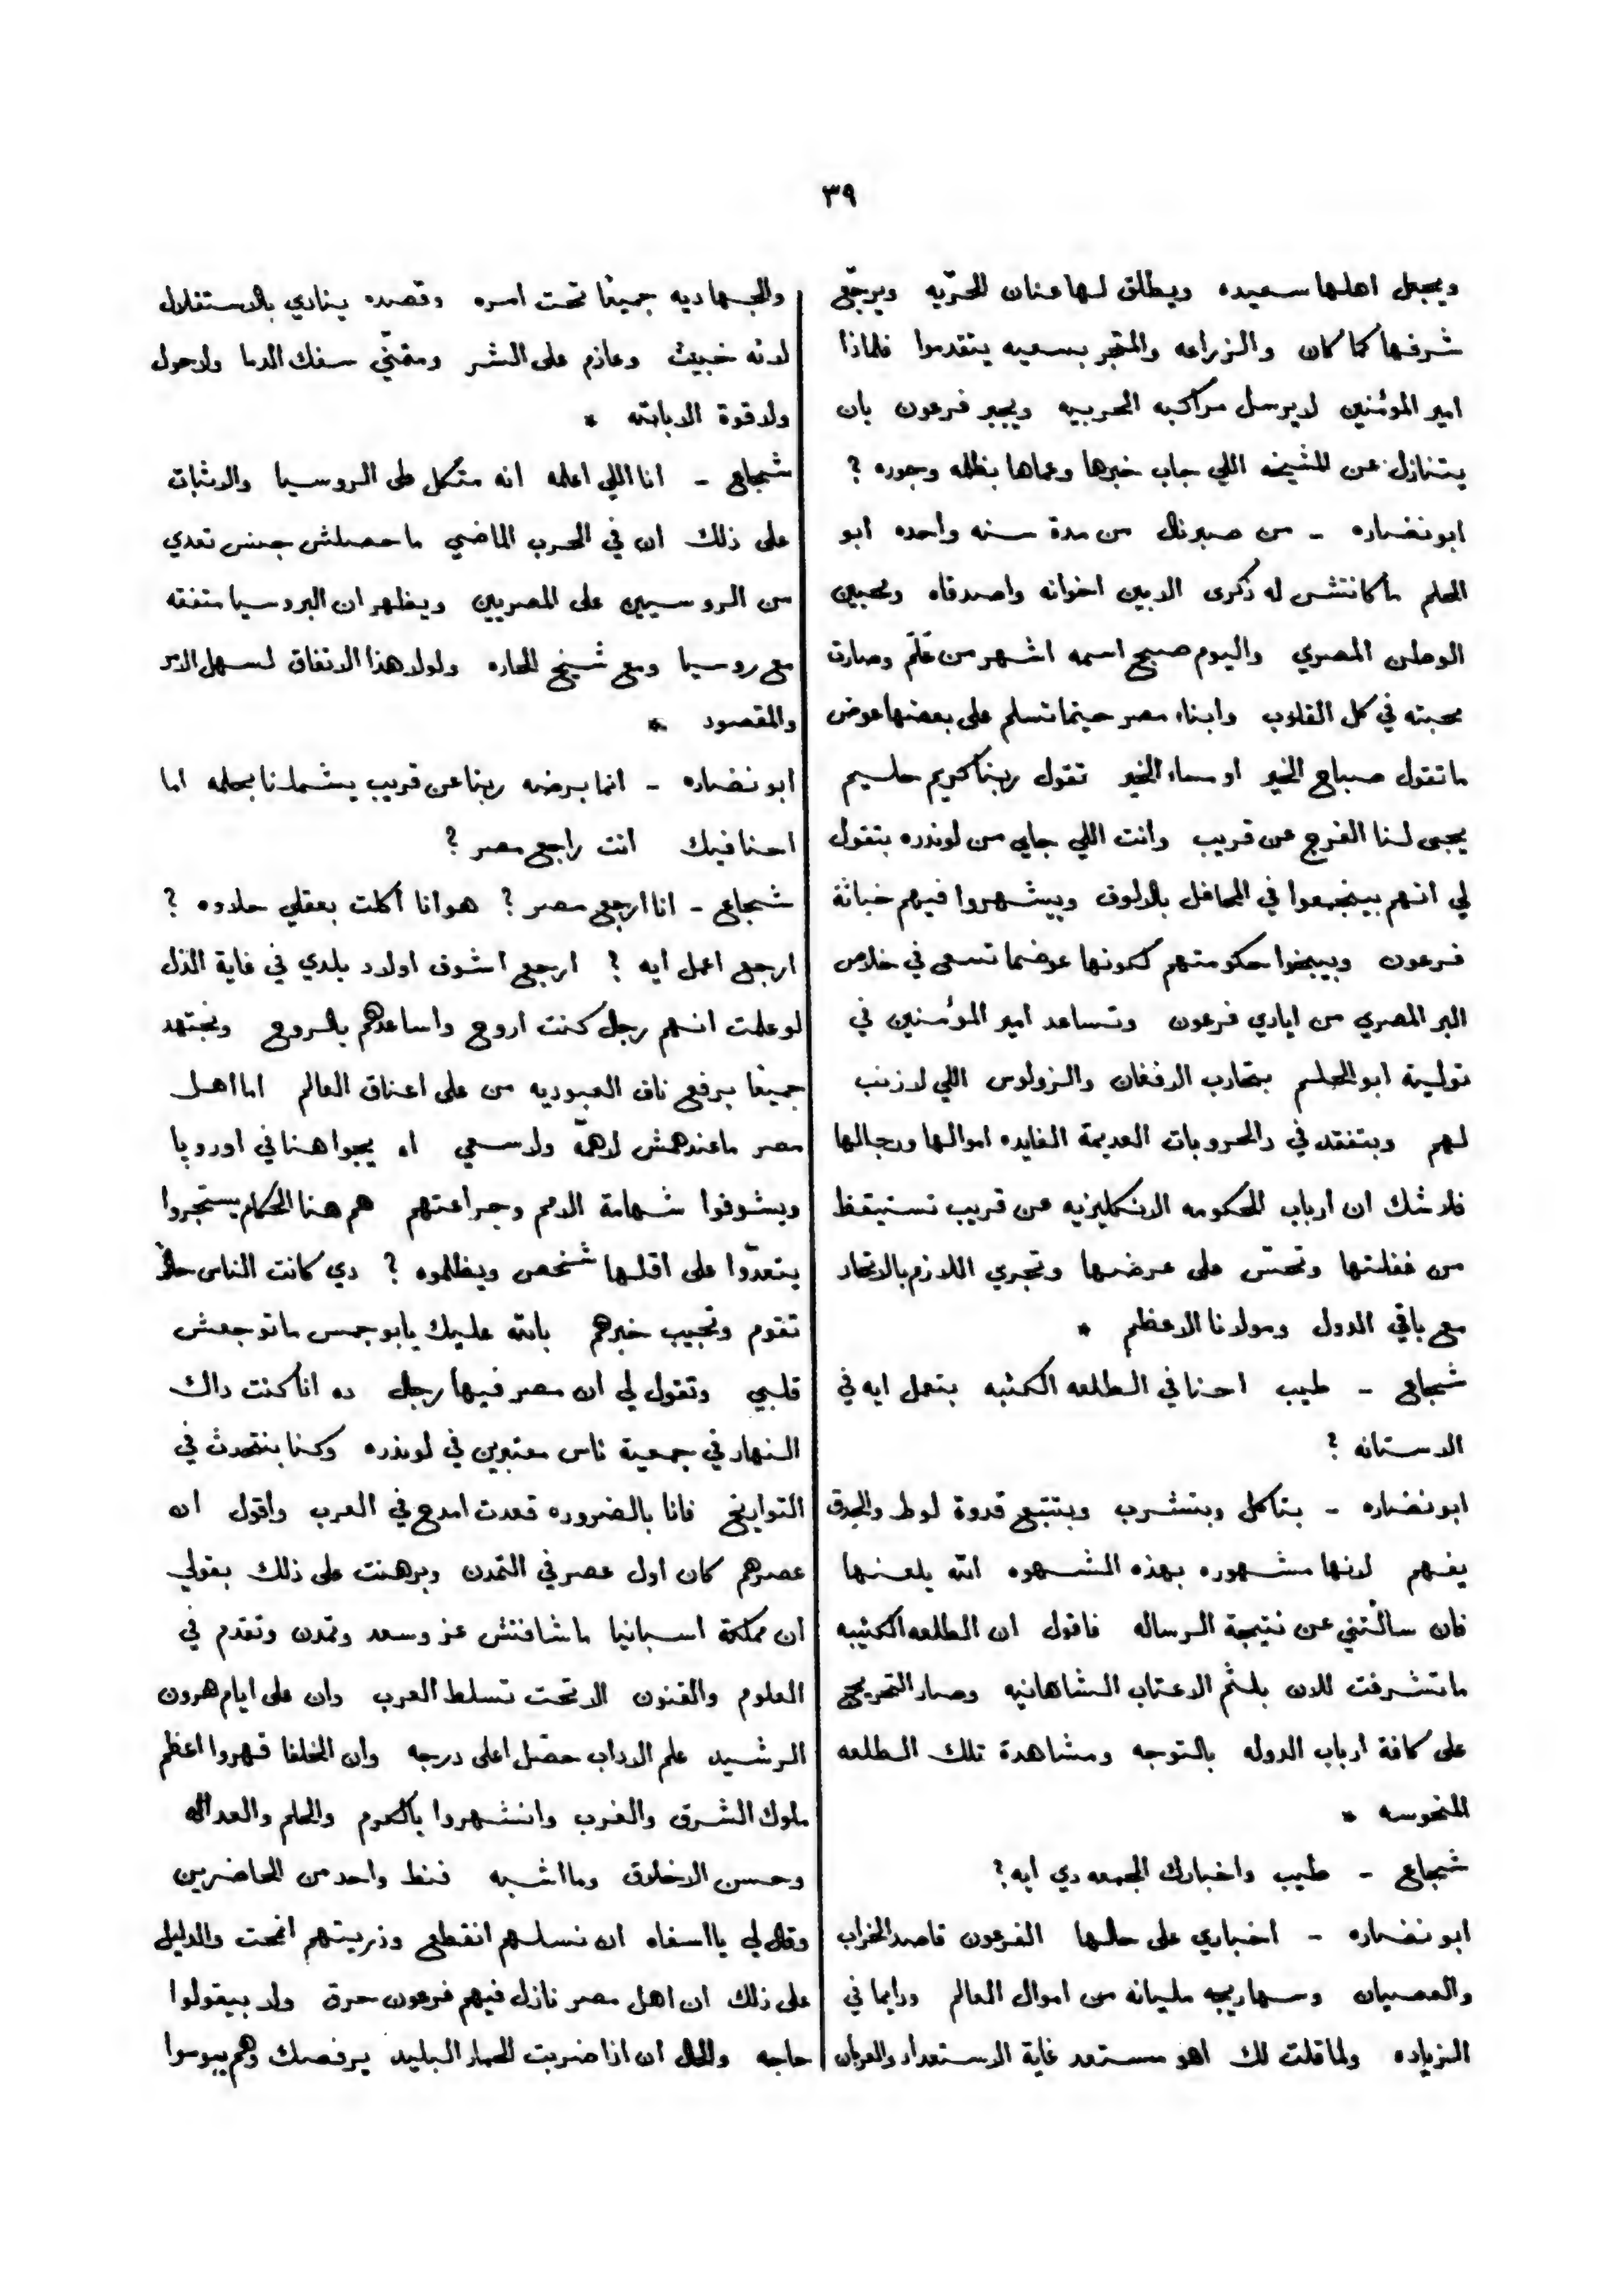 ٣٩
ويجعل اهلها سعيده ويطلق لها عنان الحرّيه ويرجّع
شرفها كما كان والزراعه والمتجر بسعيه يتقدموا فلماذا
امير الموئمنين لا يرسل مراكبه الحربيه ويجبر فرعون بان
يتنازل عن المشيخه اللي جاب خبرها وعماها بظلمه وجوره ؟
ابو نضاره - من صبر نال من مدة سنه واحده ابو
الحلم ما كانتش له ذكرى الا بين اخوانه واصدقاه ومحبين
الوطن المصري واليوم صبح اسمه اشهر من عَلَم وصارت
محبته في كل القلوب وابناء مصر حينما تسلم على بعضها عوض
ما تقول صباح الخير او مساء الخير تقول ربنا كريم حليم
يجى لنا الفرج عن قريب وانت اللي جاي من لوندره بتقول
لي انهم بيتجمعوا في المحافل بالالوف وبيشهروا فيهم خباثة
فرعون وبيبخوا حكومتهم لكونها عوضما تسعى في خلاص
البر المصري من ايادي فرعون وتساعد امير الموئمنين في
تولية ابو الحلم بتحارب الافغان والزولوس اللي لا زنب
لهم وبتفقد في دالحروبات العديمة الفايده اموالها ورجالها
فلا شك ان ارباب الحكومه الانكليزيه عن قريب تستيقظ
من غفلتها وتحسّ على عرضها وتجري اللازم بالاتحاد
مع باقي الدول ومولانا الاعظم *
شجاع - طيب احنا في الطلعه الكئبه بتعمل ايه في
الاستانه ؟
ابو نضاره - بتاكل وبتشرب وبتتبع قدوة لوط والحِدق
يفهم لانها مشهوره بهذه الشهوه الله يلعنها
فان سالتني عن نتيجة الرساله فاقول ان الطلعه الكئيبه
ما تشرفت للان بلثم الاعتاب الشاهانيه وصار التحريج
على كافة ارباب الدوله بالتوجه ومشاهدة تلك الطلعه
المنحوسه *
شجاع - طيب واخبارك الجمعه دي ايه ؟
ابو نضاره - اخباري على حالها الفرعون قاصد الخراب
والعصيان وسهاريجه مليانه من اموال العالم ودايما في
الزياده ولما قلت لك اهو مستعد غاية الاستعداد والعربان
والجهاديه جميعًا تحت امره وقصده ينادي بالاستقلال
لانه خبيث وعازم على الشر ومتمنّي سفك الدما ولا حول
ولا قوة الا بالله *
شجاع - انا اللي اعلمه انه متكل على الروسيا والاثبات
على ذلك ان في الحرب الماضي ما حصلش جنس تعدي
من الروسيين على المصريين ويظهر ان البروسيا متفقه
مع روسيا ومع شيخ الحاره ولولا هذا الاتفاق لسهل الامر
والمقصود *
ابو نضاره - انما برضه ربنا عن قريب يشملنا بحلمه اما
احنا فيك انت راجع مصر ؟
شجاع - انا ارجع مصر ؟ هو انا اكلت بعقلي حلاوه ؟
ارجع اعمل ايه ؟ ارجع اشوف اولاد بلدي في غاية الذل
لو علمت انهم رجل كنت اروح واساعدهم بالروح ونجتهد
جميعًا برفع ناف العبوديه من على اعناق العالم اما اهل
مصر ما عندهمش لا همّه ولا سعي اه يجوا هنا في اوروبا
ويشوفوا شهامة الامم وجراعتهم هم هنا الحكام يستجروا
يتعدّوا على اقلها شخص ويظلموه ؟ دي كانت الناس حالاً
تقوم وتجيب خبرهم بالله عليك يا بو جمس ما توجعش
قلبي وتقول لي ان مصر فيها رجل ده انا كنت داك
النهار في جمعية ناس معتبرين في لوندره وكنا بنتحدث في
التواريخ فانا بالضروره قعدت امدح في العرب واقول ان
عصرهم كان اول عصر في التمدن وبرهنت على ذلك بقولي
ان مملكة اسبانيا ما شافتش عز وسعد وتمدن وتقدم في
العلوم والفنون الا تحت تسلط العرب وان على ايام هرون
الرشيد علم الاداب حصّل اعلى درجه وان الخلفا قهروا اعظم
ملوك الشرق والغرب وانشهروا بالكرم والحلم والعداله
وحسن الاخلاق وما اشبه فنط واحد من الحاضرين
وقال لي يا اسفاه ان نسلهم انقطع وذريتهم انمحت والدليل
على ذلك ان اهل مصر نازل فيهم فرعون حرق ولا بيقولوا
حاجه والحال ان اذا ضربت الحمار البليد يرفصك وهم بيبوسوا